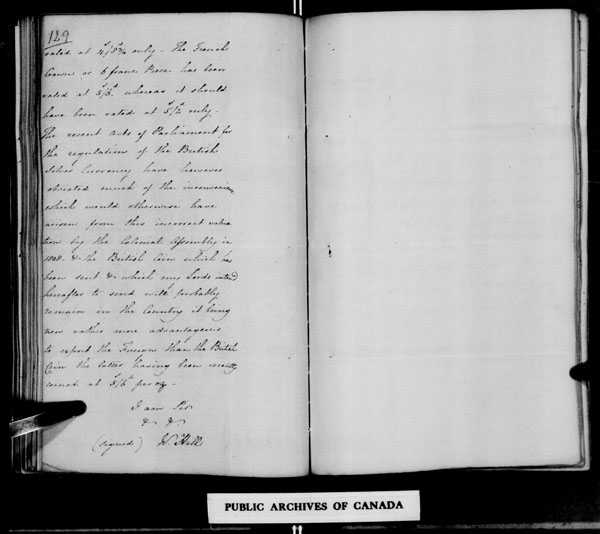 129
rated at 4/8¾ only. The French
Crown or 6 franc Piece has been
rated at 5/6 whereas it should
have been rated at 5/2 only.
The recent Acts of Parliament for
the regulation of the British
Silver Currency have however
obviated much of the inconvenience
which would otherwise have
arisen from this incorrect valua
tion by the Colonial Assembly in
1808. & the British Coin which has
been sent & which my Lords intend
hereafter to send will probably
remain in the Country it being
now rather more advantageous
to export the Foreign than the British
Coin the latter having been recently
coined at 5/6 per oz -
I am Sir
& &
(signed) W. Hill
PUBLIC ARCHIVES OF CANADA